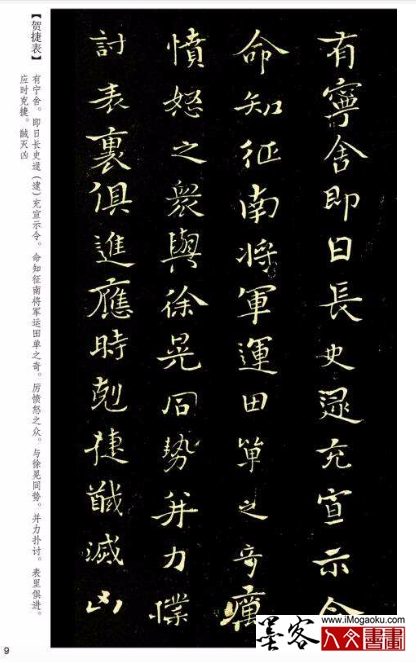 有寧舍即日長史逯充宣示令
命知征南将軍運田單之奇癘
憤怒之衆與徐晃同勢并力撲
討表裏俱進應時剋捷馘滅凶
【贺捷表】
有宁舍。即日长史逯（逮）充宣示令。命知征南将军运田单之奇。厉愤怒之众。与徐晃同势。并力扑讨。表里俱进。
应时克捷。馘灭凶
9
墨客
www.iMogaoku.com
人文書畫